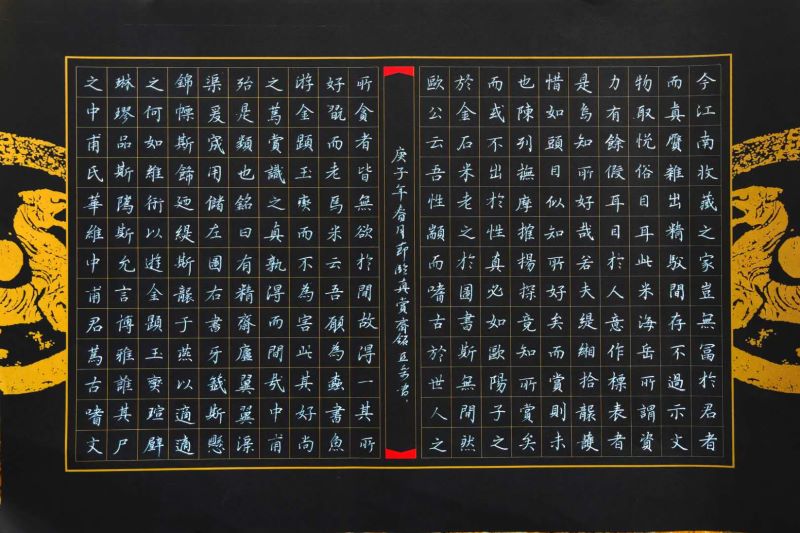 今江南收藏之家豈無冨於君者
而真贋雜出精駁間存不過示文
物取悅俗目耳此米海岳所謂資
力有餘假耳目於人意作標表者
是烏知所好哉若夫緹緗拾襲護
惜如頭目似知所好矣而賞則未
也陳列撫摩搉揚探竟知所賞矣
而或不出於性真必如歐陽子之
於金石米老之於圖書斯無間然
歐公云吾性顓而嗜古於世人之
庚子年春月節臨真賞齋銘
所貪者皆無欲於間故得一其所
好翫而老焉米云吾願為蠹書魚
游金題玉躞而不為害此其好尚
之篤賞識之真孰得而間哉中甫
殆是類也銘曰有精齋廬翼翼渠
渠爰宬用儲左圖右書牙籤斯懸
錦幖斯飾廼緹斯襲于燕以適適
之何如維衎以遊金題玉躞瑄璧
琳璆品斯隲斯允言博雅誰其尸
之中甫氏華維中甫君篤古嗜文